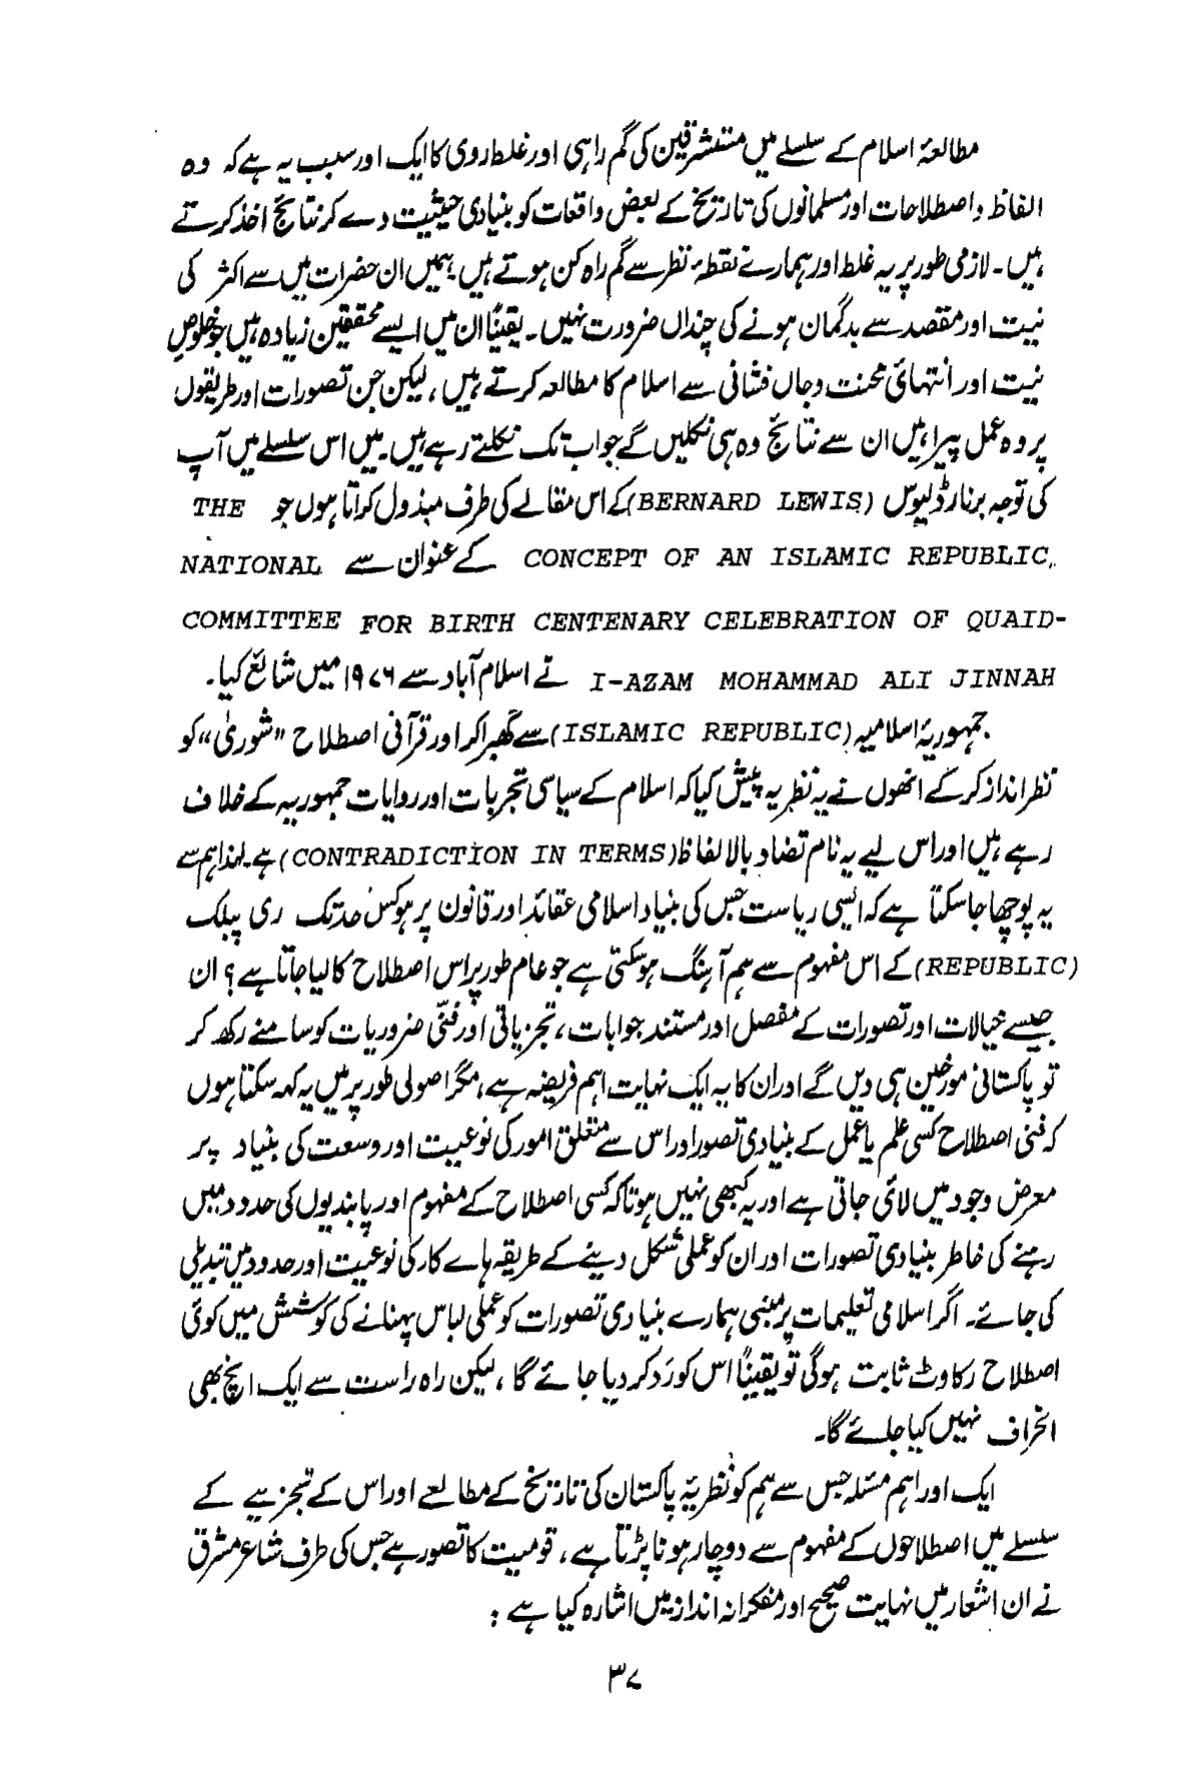 مطالعۂ اسلام کے سلسلے میں مستشرقین کی گم راہی اور غلط روی کا ایک اور سبب یہ ہے کہ وہ
الفاظ و اصطلاحات اور مسلمانوں کی تاریخ کے بعض واقعات کو بنیادی حیثیت دے کر نتائج اخذ کرتے
ہیں۔ لازمی طور پر یہ غلط اور ہمارے نقطۂ نظر سے گم راہ کن ہوتے ہیں۔ ہمیں ان حضرات میں سے اکثر کی
نیت اور مقصد سے بدگمان ہونے کی چنداں ضرورت نہیں۔ یقیناً ان میں ایسے محققین زیادہ ہیں جو خلوصِ
نیت اور انتہائی محنت و جاں فشانی سے اسلام کا مطالعہ کرتے ہیں، لیکن جن تصورات اور طریقوں
پر وہ عمل پیرا ہیں ان سے نتائج وہ ہی نکلیں گے جو اب تک نکلتے رہے ہیں۔ میں اس سلسلے میں آپ
کی توجہ برنارڈ لیوس (BERNARD LEWIS) کے اس مقالے کی طرف مبذول کراتا ہوں جو THE
CONCEPT OF AN ISLAMIC REPUBLIC, کے عنوان سے NATIONAL
COMMITTEE FOR BIRTH CENTENARY CELEBRATION OF QUAID-
I-AZAM MOHAMMAD ALI JINNAH نے اسلام آباد سے ۱۹۷۶ میں شائع کیا۔
جمہوریۂ اسلامیہ (ISLAMIC REPUBLIC) سے گھبرا کر اور قرآنی اصطلاح "شوریٰ" کو
نظر انداز کر کے انھوں نے یہ نظریہ پیش کیا کہ اسلام کے سیاسی تجربات اور روایات جمہوریہ کے خلاف
رہے ہیں اور اس لیے یہ نام تضاد بالالفاظ (CONTRADICTION IN TERMS) ہے۔ لہٰذا ہم سے
یہ پوچھا جا سکتا ہے کہ ایسی ریاست جس کی بنیاد اسلامی عقائد اور قانون پر ہو کس حد تک ری پبلک
(REPUBLIC) کے اس مفہوم سے ہم آہنگ ہو سکتی ہے جو عام طور پر اس اصطلاح کا لیا جاتا ہے؟ ان
جیسے خیالات اور تصورات کے مفصل اور مستند جوابات، تجزیاتی اور فنّی ضروریات کو سامنے رکھ کر
تو پاکستانی مورخین ہی دیں گے اور ان کا یہ ایک نہایت اہم فریضہ ہے، مگر اصولی طور پر میں یہ کہہ سکتا ہوں
کہ فنی اصطلاح کسی علم یا عمل کے بنیادی تصور اور اس سے متعلق امور کی نوعیت اور وسعت کی بنیاد پر
معرض وجود میں لائی جاتی ہے اور یہ کبھی نہیں ہوتا کہ کسی اصطلاح کے مفہوم اور پابندیوں کی حدود میں
رہنے کی خاطر بنیادی تصورات اور ان کو عملی شکل دینے کے طریقہ ہاے کار کی نوعیت اور حدود میں تبدیلی
کی جائے۔ اگر اسلامی تعلیمات پر مبنی ہمارے بنیادی تصورات کو عملی لباس پہنانے کی کوشش میں کوئی
اصطلاح رکاوٹ ثابت ہوگی تو یقیناً اس کو رَد کر دیا جائے گا، لیکن راہ راست سے ایک انچ بھی
انحراف نہیں کیا جائے گا۔
ایک اور اہم مسئلہ جس سے ہم کو نظریۂ پاکستان کی تاریخ کے مطالعے اور اس کے تجزیے کے
سلسلے میں اصطلاحوں کے مفہوم سے دوچار ہونا پڑتا ہے، قومیت کا تصور ہے جس کی طرف شاعر مشرق
نے ان اشعار میں نہایت صحیح اور مفکرانہ انداز میں اشارہ کیا ہے:
۳۷